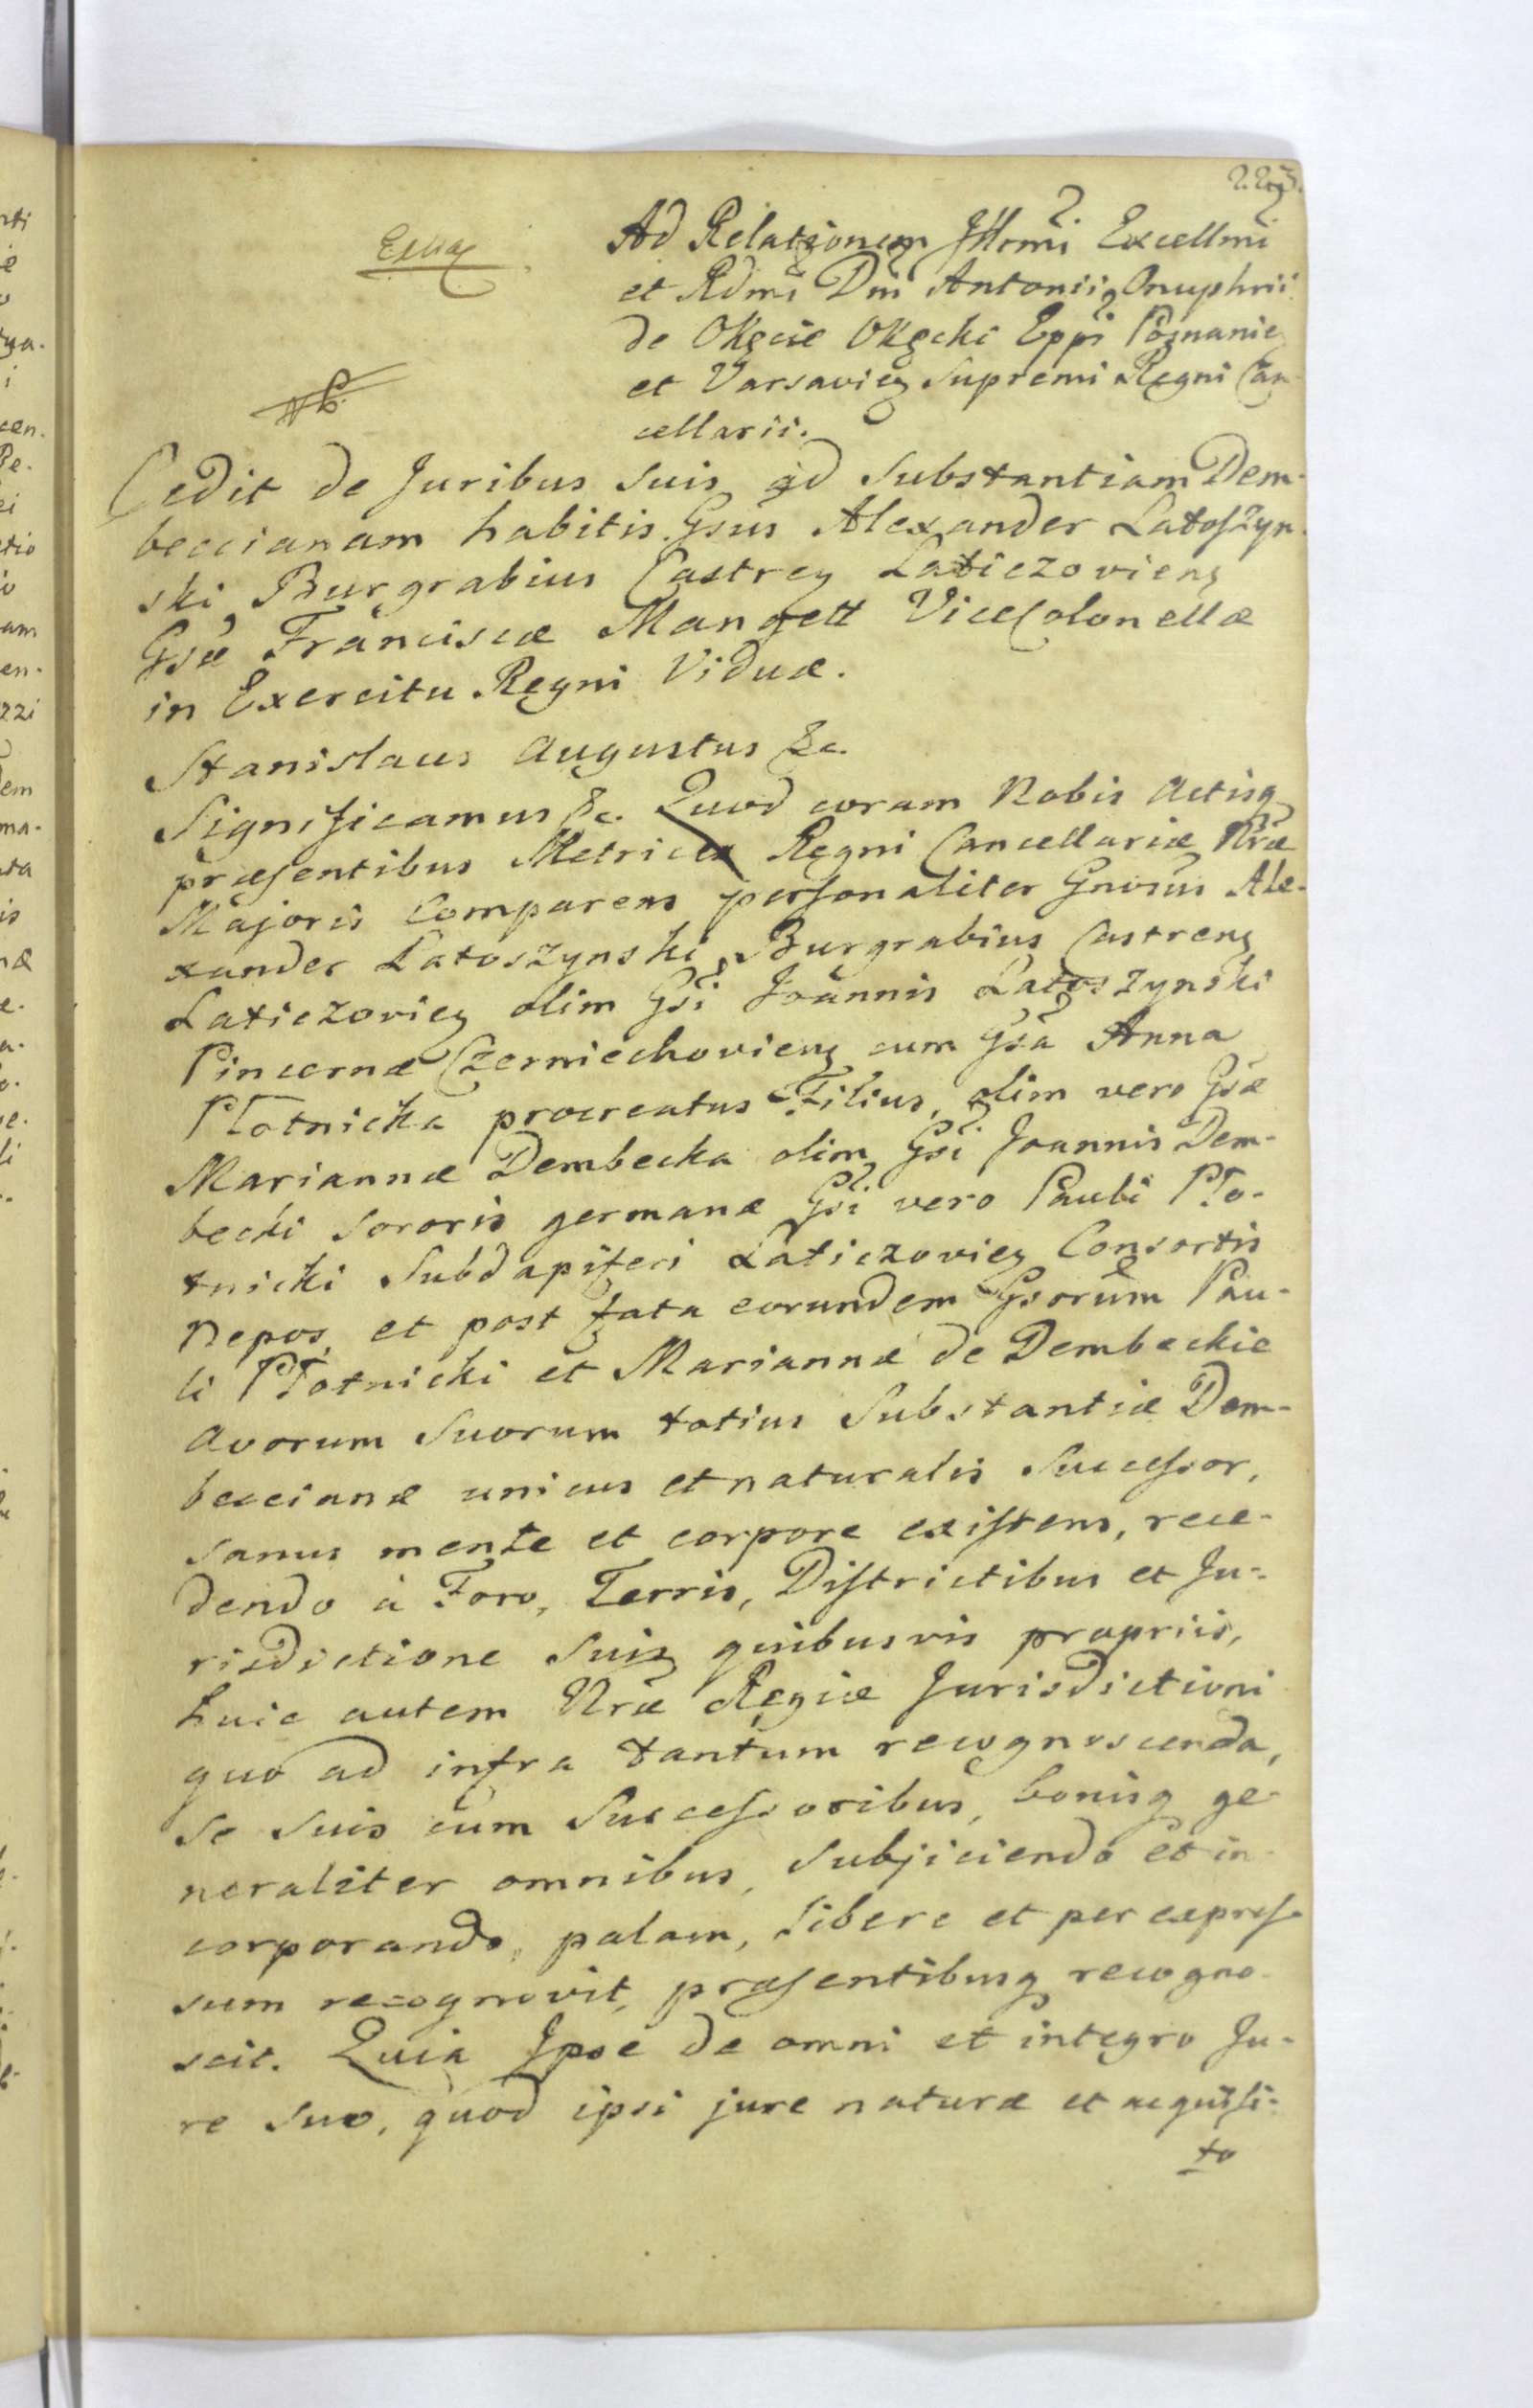 Ad Relationem Jllrmi Excellmi
et Rdmi Dni Antonii Onuphrii
de Okęcie Okęcki Eppi Posnanien
et Varsavien Supremi Regni Can-
cellarii.
Cedit de Juribus suis ad Substantiam Dem-
beccianam habitis. Gsus Alexander Latoszyn-
ski Burgrabius Castren Laticzoviens
Gsæ Franciscæ Mangett ViceColonellæ
in Exercitu Regni Viduæ.
Stanislaus Augustus &c.
Significamus &c. Quod coram Nobis Actisq
præsentibus Metrices Regni Cancellariæ Nræ
Majoris Comparens personaliter Gnosus Ale-
xander Latoszynski Burgrabius Castrens
Laticzovien olim Gsi Joannis Latoszynski
Pincernæ Czerniechoviens cum Gsa Anna
Płotnicka procreatus Filius, olim vero Gsæ
Mariannæ Dembecka olim Gsi Joannis Dem-
becki Sororis germanæ Gsi vero Pauli Pło-
tnicki Subdapiferi Laticzovien Consortis
Nepos, et post fata eorundem Gsorum Pau-
li Płotnicki et Mariannæ de Dembeckie
Avorum Suorum totius Substantiæ Dem-
beccianæ unicus et naturalis Successor,
sanus mente et corpore existens, rece-
dendo à Foro, Terris, Districtibus et Ju-
risdictione Suis quibusvis propriis,
huic autem Nræ Regiæ Jurisdictioni
quo ad infra tantum recognoscenda,
se suis cum Successoribus, bonisq ge-
neraliter omnibus, subjiciendo et in-
corporando, palam, libere et per expres-
sum recognovit, præsentibusq recogno-
scit. Quia Ipse de omni et integro Ju-
re suo, quod ipsi jure naturæ et acquisi-
to